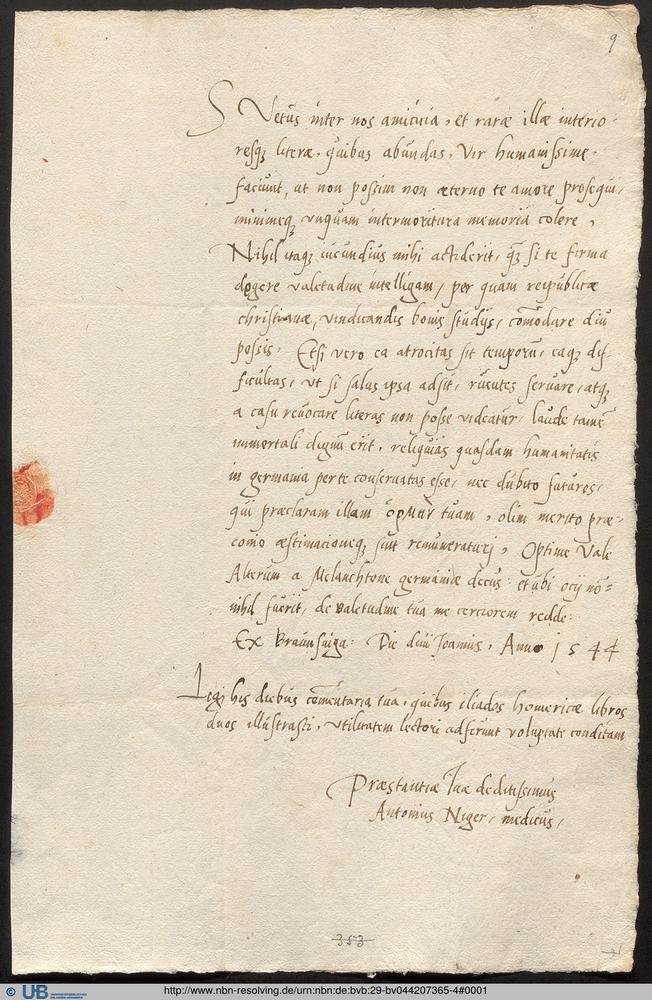 9
S Vetus inter nos amicicia, et raræ illæ interio-
resq; literæ, quibus abundas, Vir humanissime,
faciunt, ut non possim non æterno te amore prosequi,
minimeq; vnquam intermoritura memoria colere,
Nihil itaq; iucundius mihi acciderit, q̃ si te firma
degere valetudine intelligam, per quam reipublicæ
christianæ, vindicandis bonis studijs, com̃odare diu
possis. Etsi vero ea atrocitas sit temporũ, eaq; dif-
ficultas, vt si salus ipsa adsit, ruentes seruare, atq;
a casu reuocare literas non posse videatur, laude tamẽ
immortali dignũ erit, reliquias quasdam humanitatis
in germania per te conseruatas esse, nec dubito futuros,
qui præclaram illam ὁρμὴν tuam, olim merito præ-
conio æstimacioneq; sint remuneraturj, Optime Vale
Alterum a Melanchtone germaniæ decus: et ubi ocij nõ-
nihil fuerit, de valetudine tua me cerciorem redde:
Ex Braunsuiga: Die diui Joannis, Anno 1544
Legi his diebus com̃entaria tua, quibus iliados homericæ libros
duos illustrasti, vtilitatem lectori adferunt voluptate conditam
Præstantiæ Tuæ deditissimus
Antonius Niger, medicus,
353
© UB
http://www.nbn-resolving.de/urn:nbn:de:bvb:29-bv044207365-4#0001